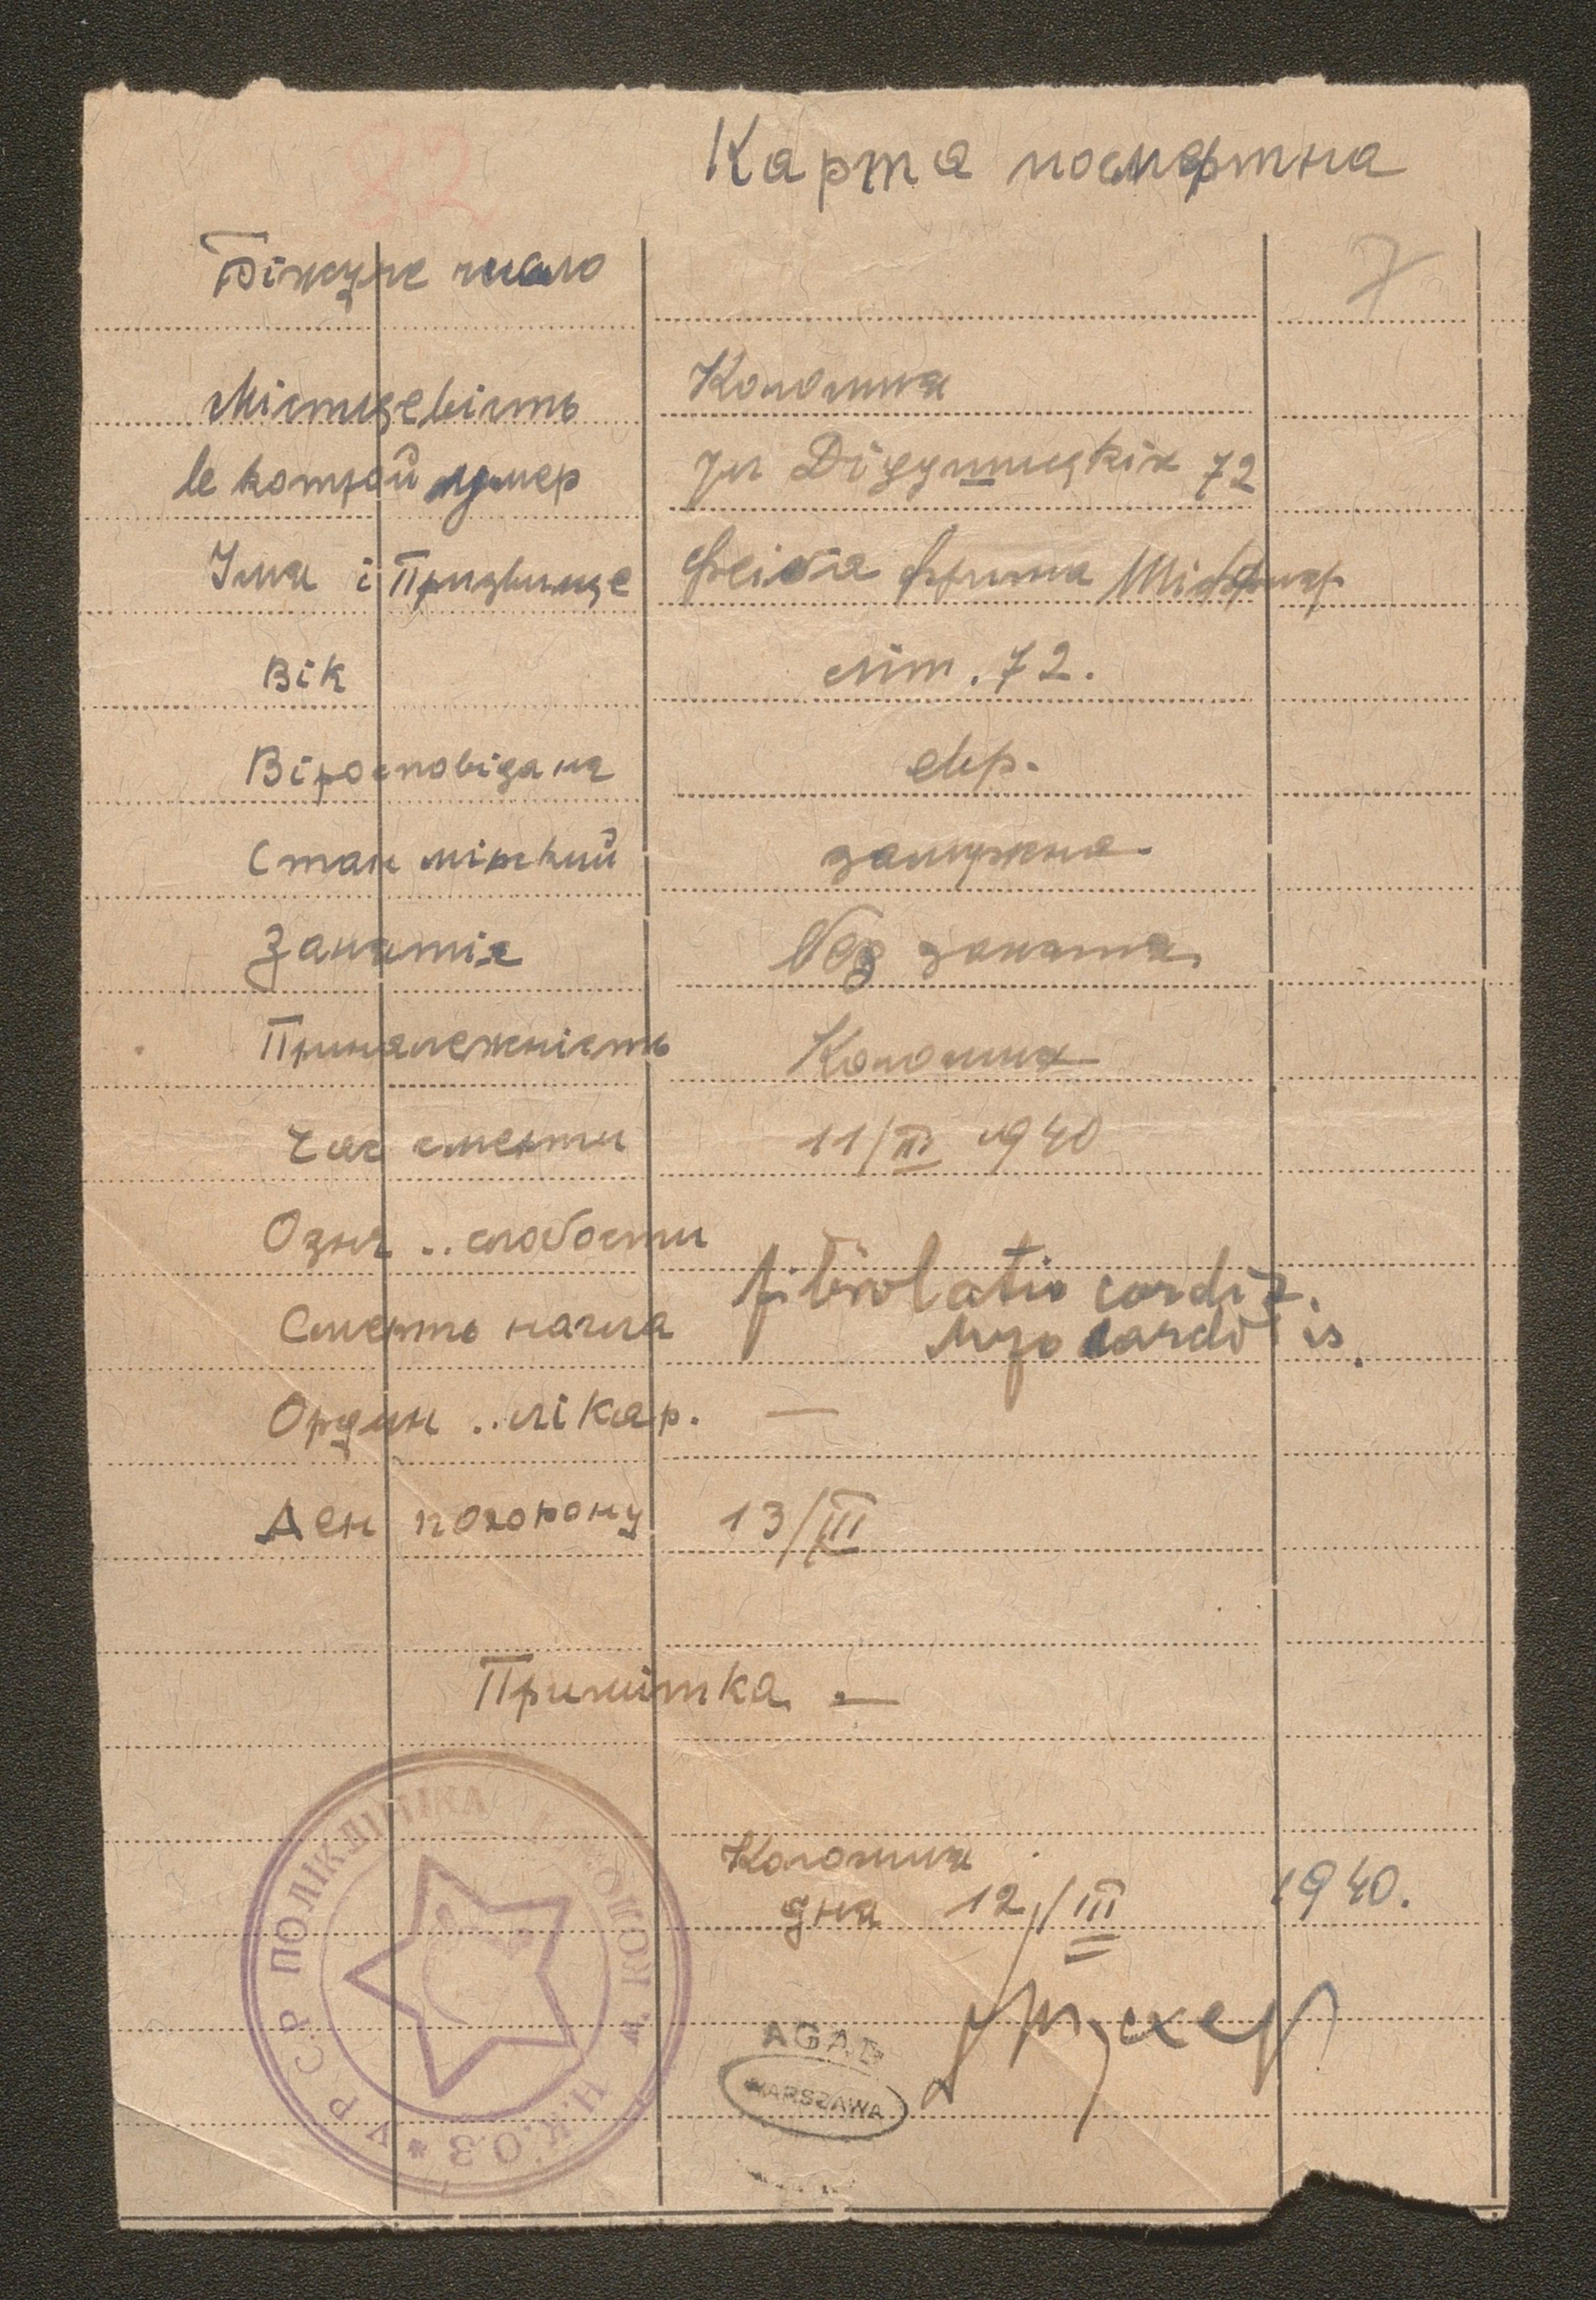 22
Карта посмертна
Біжуче число
7
Місцевість
Коломия
в котрой умер
ул Дідушицкіх 72
Імя і Призвище
Фейга Фрима
Вік
літ. 72.
Віросповіданя
евр.
Стан міский
замужна.
Занятія
без занятя.
Приналежність
Коломия
Час смерти
11/III 1940
Озн. .. слобости
fibrolatio cordis.
Смерть нагла
myocardis.
Ордин .. лікар. —
Ден похорону
13/III
Примітка. —
Коломия
дня 12/III 1940.
У Р С.Р ПОЛІКЛІНІКА
Н.К.О.З *
AGAD
WARSZAWA